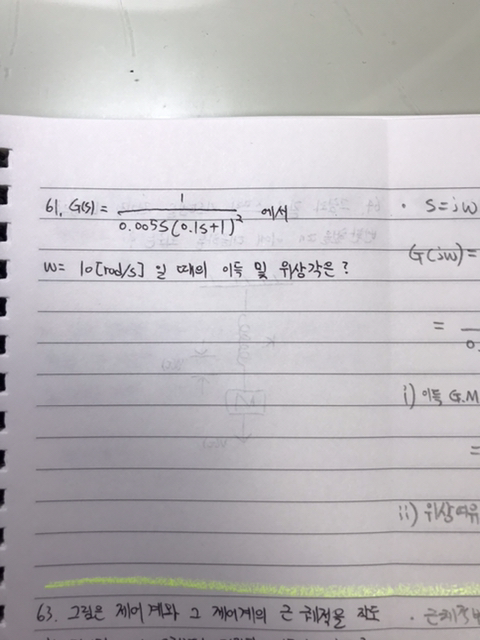 61. G(s) = 1 / 0.005S(0.1s+1)² 에서
W= 10[rad/s] 일 때의 이득 및 위상각은?
· S=jw
G(jw)=
=
0.
i) 이득 G.M
=
ii) 위상여유
63. 그림은 제어계와 그 제어계의 근 궤적을 작도
· 근궤적